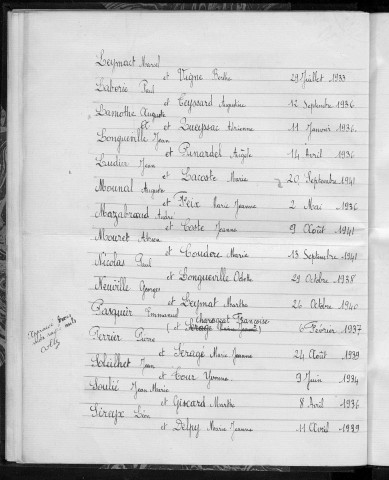 Leymat Marcel
et Vigne Berthe 29 Juillet 1933
Laborie Paul
et Teyssard Augustine 12 Septembre 1936
Lamothe Auguste
et Queyssac Adrienne 11 Janvier 1936
Longueville Jean
et Pinardel Angèle 14 Avril 1936
Laudis Jean
et Lacoste Marie 20 Septembre 1941
Mounal Auguste
et Feix Marie Jeanne 2 Mai 1936
Mazabraud André
et Coste Jeanne 9 Août 1941
Mouret
et Couderc Marie 13 Septembre 1941
Nicolas Paul
et Longueville Odette 29 Octobre 1938
Neuville Georges
et Leymat Marthe 26 Octobre 1940
Pasquier Emmanuel
Françoise
(et Février 1937
Perrier Pierre
et Serager Marie Jeanne 24 Août 1939
Jean
et Tour Yvonne 9 Juin 1934
Soulié Jean Marie
et Giscard Marthe 8 Avril 1936
Séreyx Léon
et Delpy Marie Jeanne 11 Avril 1939